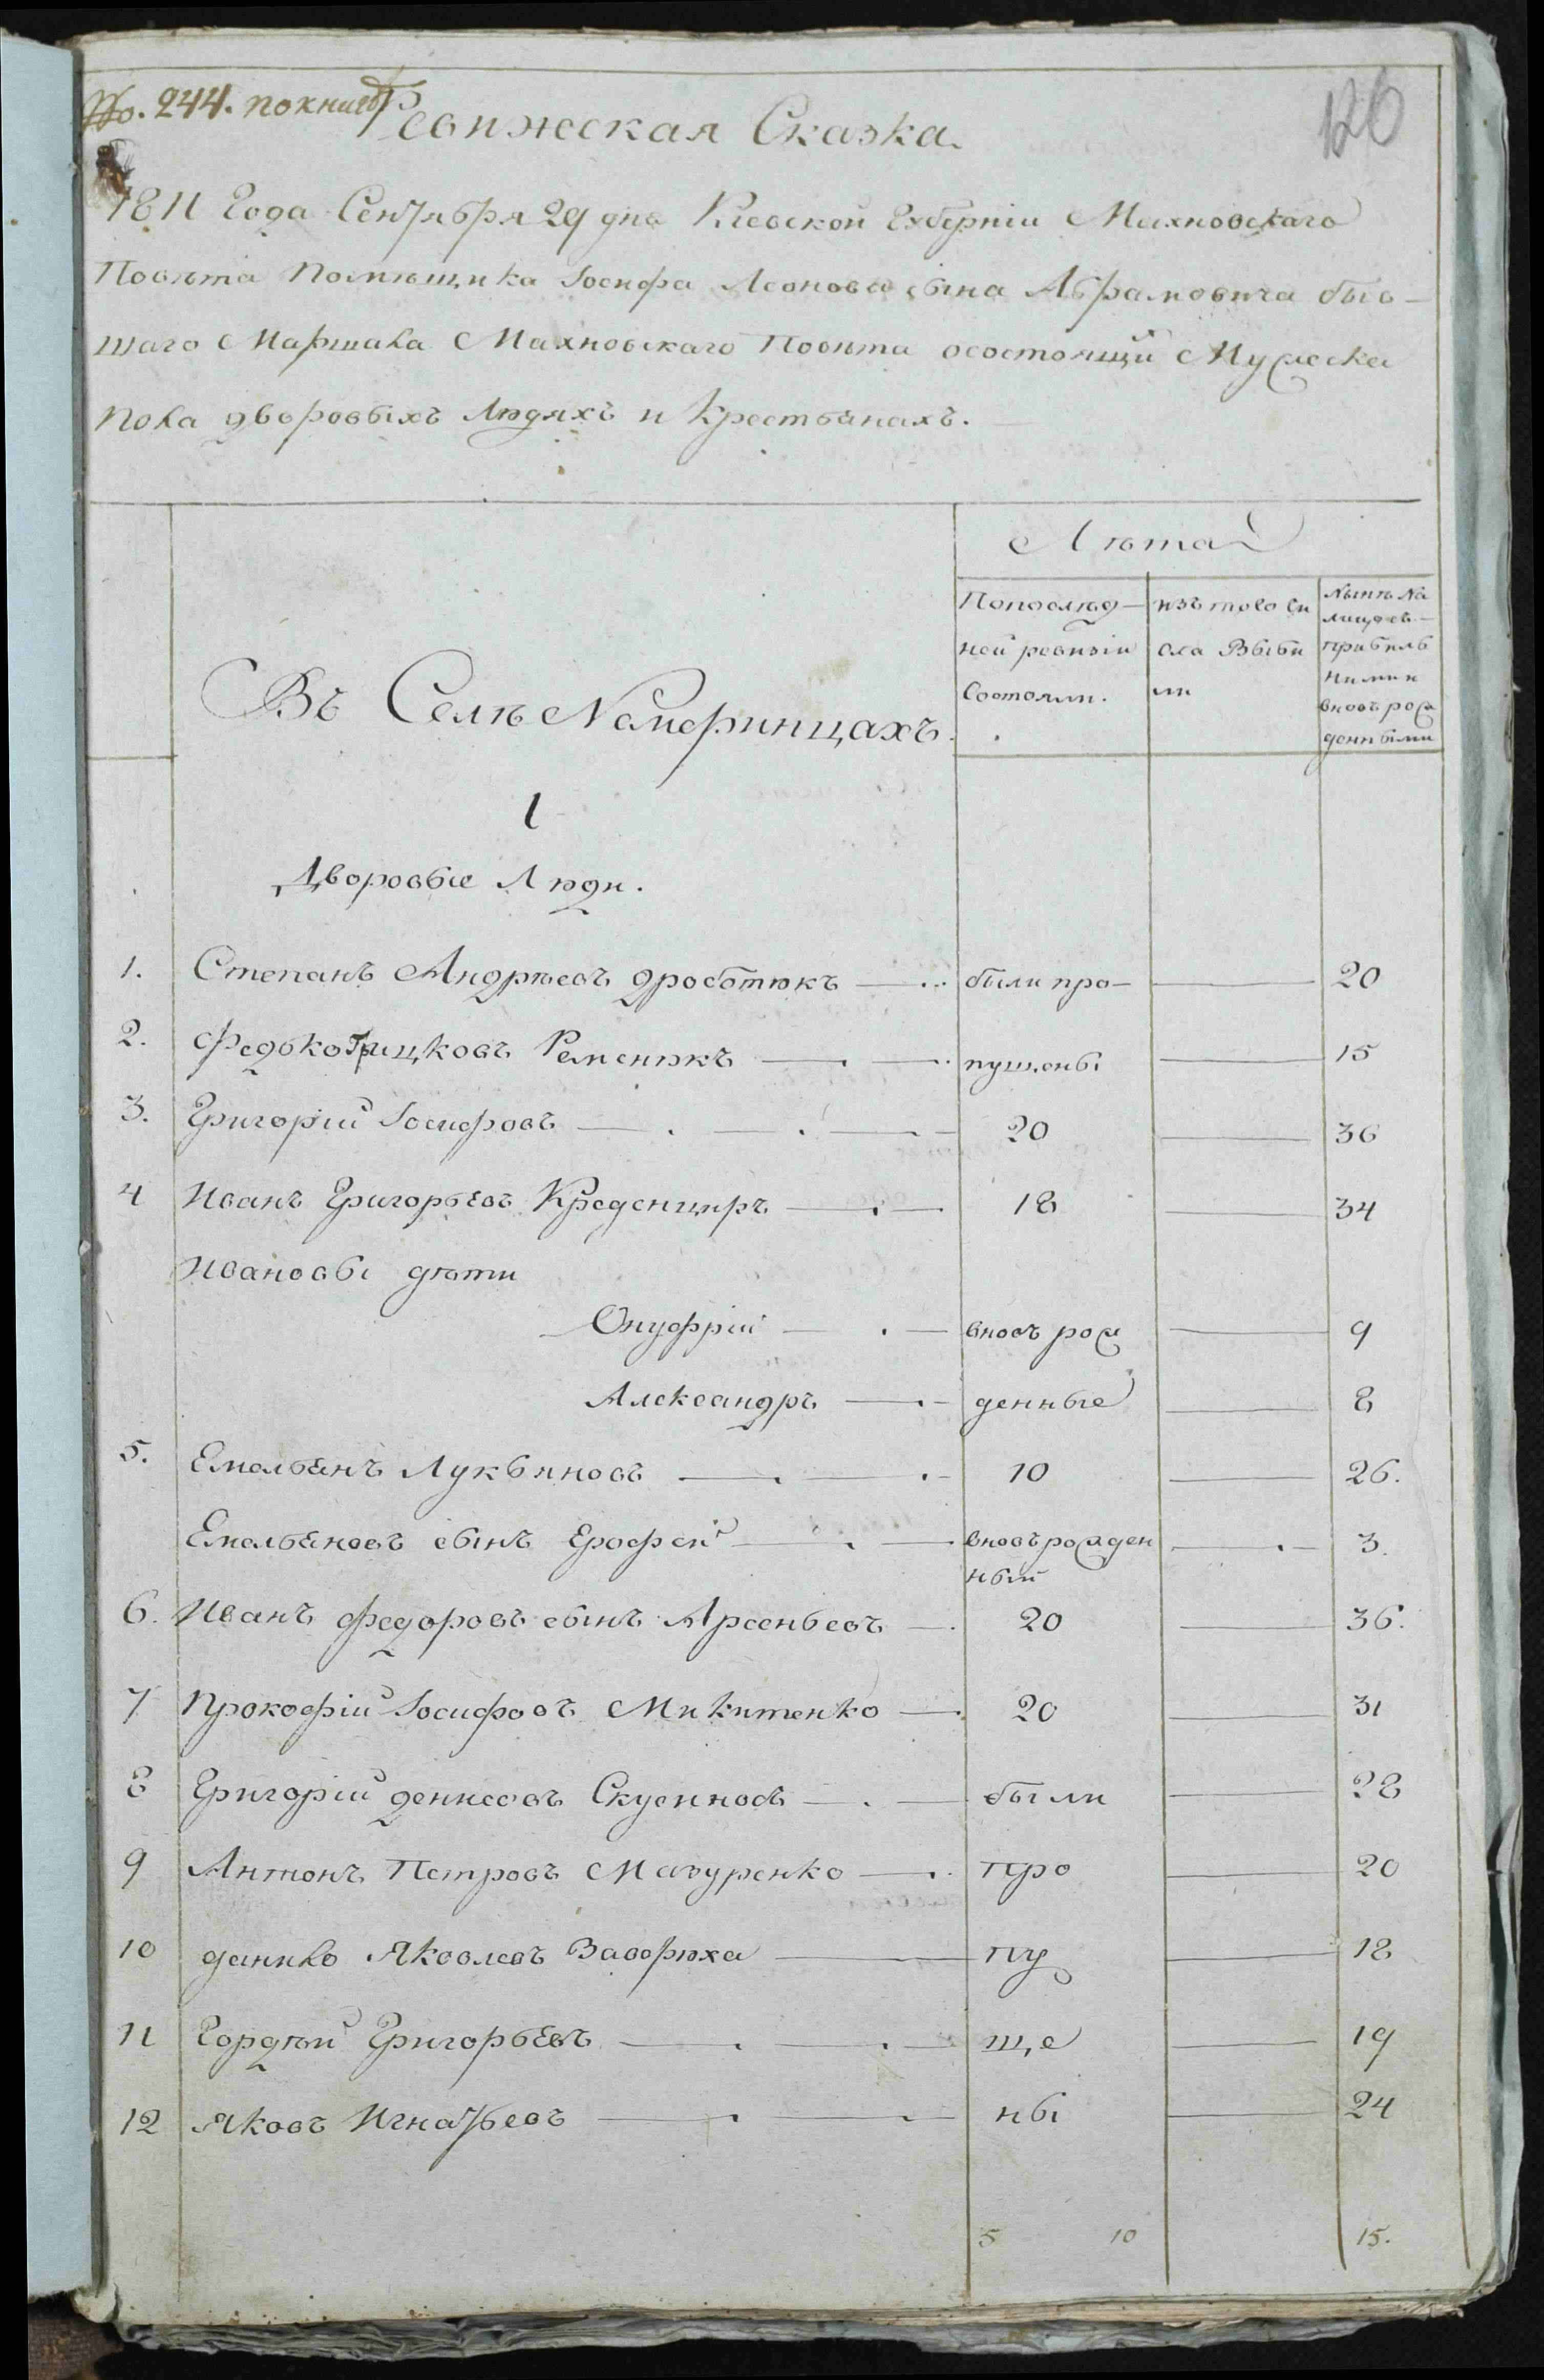 No. 244. по книгѣ
126
Ревижская Сказка.
1811 Года Сентября 29 дня Киевской Губерніи Махновскаго
Повѣта Помѣщика Іосифа Леонова сына Абрамовича быв-
шаго Маршала Махновскаго Повѣта осостоящи Мужеска
пола дворовыхъ Людяхъ и Крестьянахъ.
Лѣта
Въ Селѣ Немеринцахъ.
Попослѣд-
ней ревизіи
Состояли.
изъ того чи
сла Выбы
ли
Нынѣ На
лицо съ
прибыль
ными и
вновь рож
денными
1
Дворовые Люди.
1. Степанъ Андрѣевъ дроботюкъ были про- 20
2. Федько Грицковъ Ременюкъ пущены 15
3. Григорій Іосифовъ 20 36
4 Иванъ Григорьевъ Креденциръ 18 34
Ивановы дѣти
Онуфрій вновь рож 9
Александръ денные 8
5. Емельянъ Лукьяновъ 10 26.
Емельяновъ сынъ Ерофей вновь рожден 3.
ный
6. Иванъ федоровъ сынъ Арсеньевъ 20 36.
7 Прокофій Іосифовъ Микитенко 20 31
8 Григорій денисовъ были 28
9 Антонъ Петровъ Мазуренко про 20
10 данило Яковлевъ Заворюха пу 18
11 Гордѣй Григорьевъ ще 19
12 Яковъ Игнатьевъ ны 24
5 10 15.